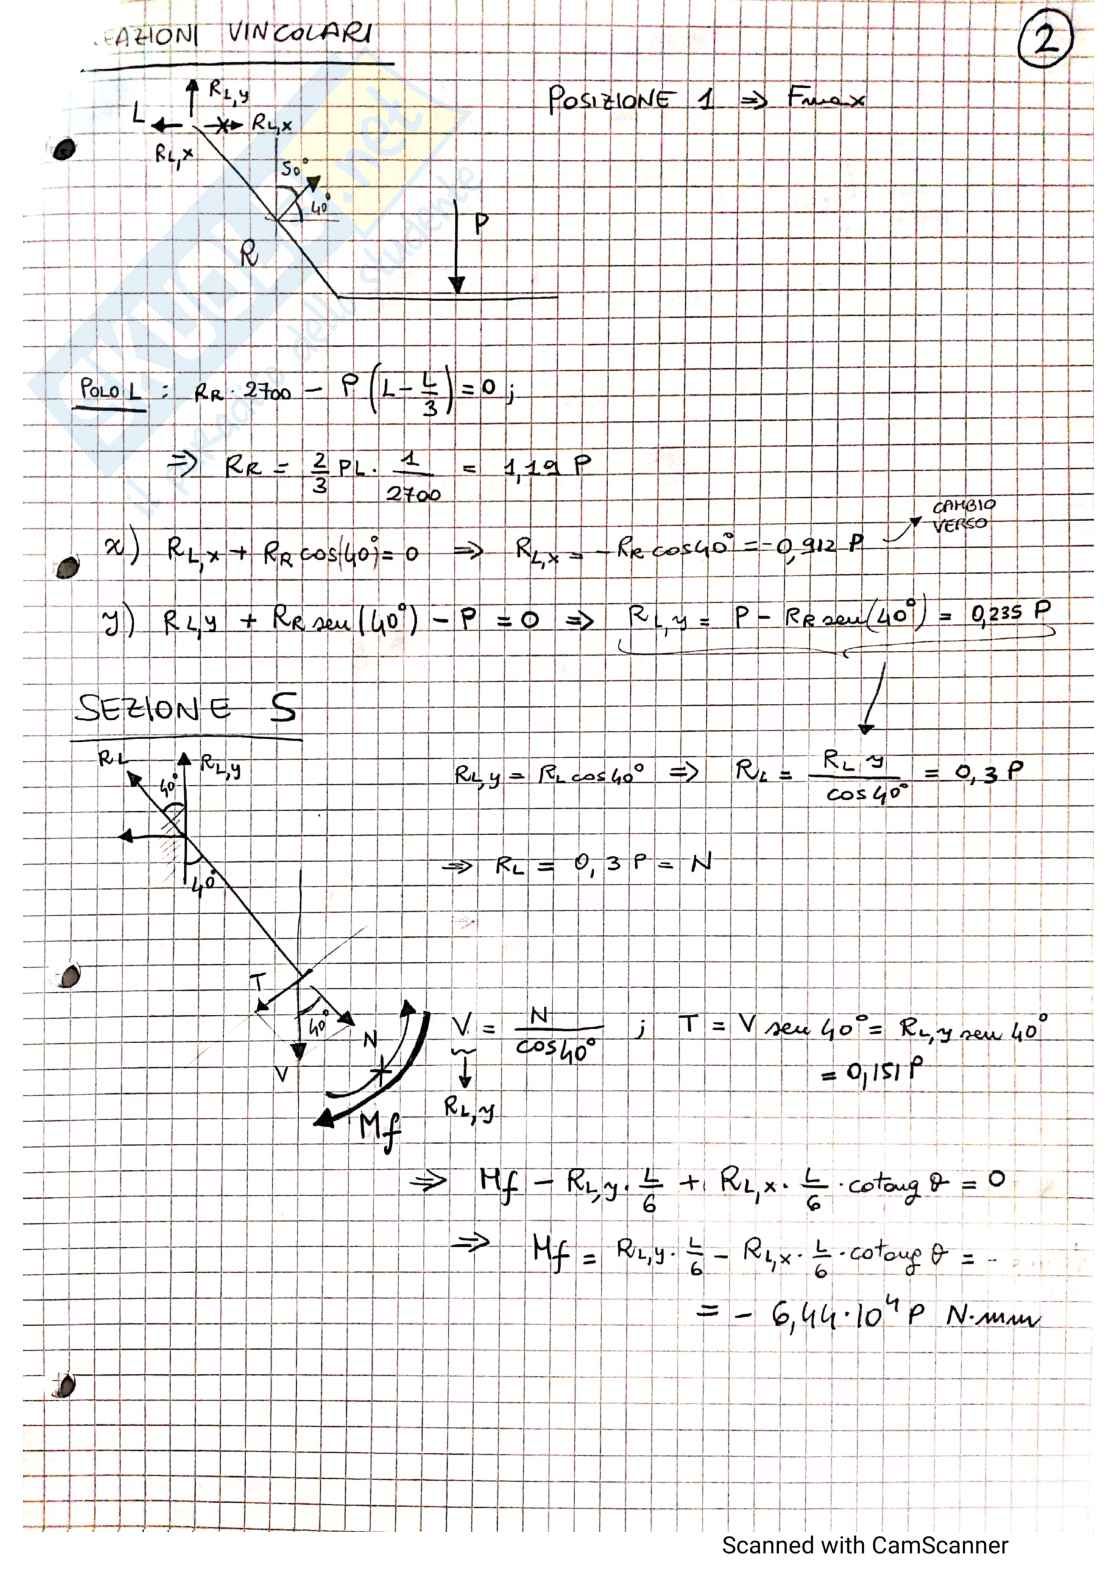 .EAZIONI VINCOLARI
2
POSIZIONE 1 ⇒ Fmax
R_L,y
L
R_L,x
R_L,x
50°
40°
P
R
POLO L : R_R · 2700 − P (L − L/3) = 0 ;
⇒ R_R = 2/3 PL · 1/2700 = 1,19 P
CAMBIO
VERSO
x) R_L,x + R_R cos(40°) = 0 ⇒ R_L,x = − R_R cos40° = −0,912 P
y) R_L,y + R_R sen(40°) − P = 0 ⇒ R_L,y = P − R_R sen(40°) = 0,235 P
SEZIONE S
R_L
40°
R_L,y
R_L,y = R_L cos40° ⇒ R_L = R_L,y / cos40° = 0,3 P
40°
⇒ R_L = 0,3 P = N
T
40°
N
V
Mf
V = N / cos40° ; T = V sen 40° = R_L,y sen 40°
= 0,151 P
R_L,y
⇒ Mf − R_L,y · L/6 + R_L,x · L/6 · cotang θ = 0
⇒ Mf = R_L,y · L/6 − R_L,x · L/6 · cotang θ = ..
= − 6,44·10⁴ P N·mm
SKUOLA.net
il paradiso dello studente
Scanned with CamScanner